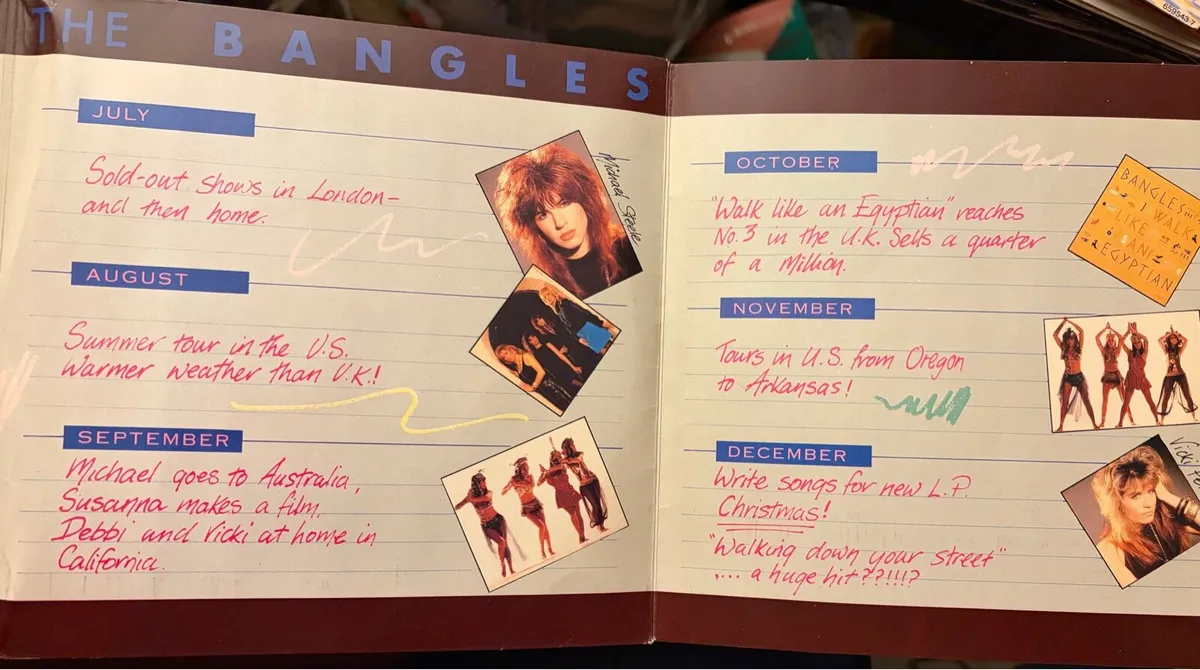 THE BANGLES
JULY
Sold-out shows in London-
and then home.
Michael Steele
AUGUST
Summer tour in the U.S.
Warmer weather than U.K.!
SEPTEMBER
Michael goes to Australia,
Susanna makes a film.
Debbi and Vicki at home in
California.
OCTOBER
"Walk like an Egyptian" reaches
No. 3 in the U.K. Sells a quarter
of a million.
BANGLES
WALK
LIKE
AN
EGYPTIAN
NOVEMBER
Tours in U.S. from Oregon
to Arkansas!
DECEMBER
Write songs for new L.P.
Christmas!
"Walking down your street"
,... a huge hit??!!!?
Vicki
659543 7